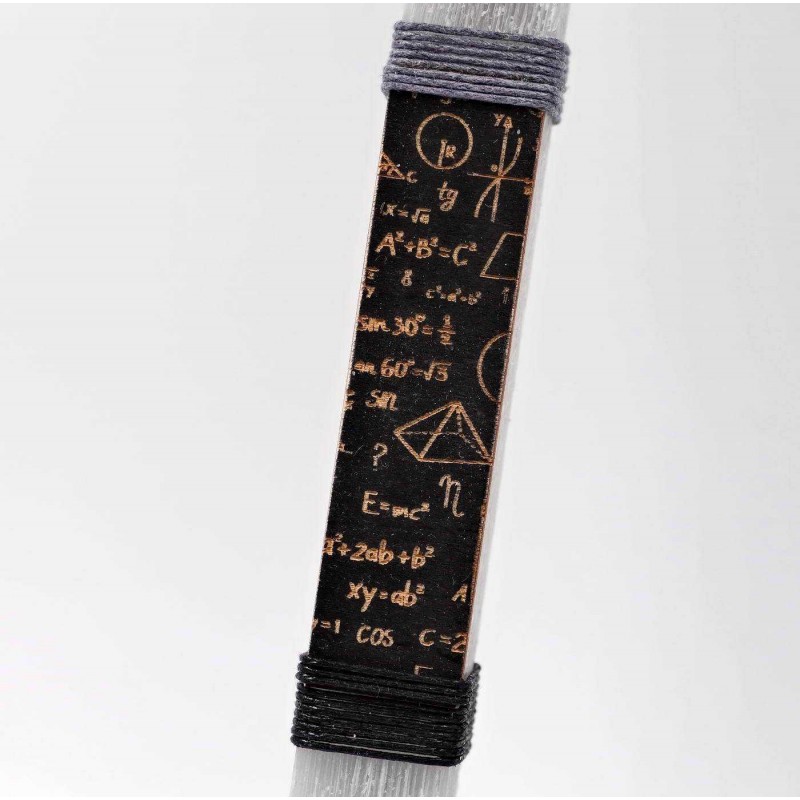 YA
R
C
tg
x=√a
A²+B²=C²
8
c²=a²+b²
sin 30°=1/2
an 60°=√3
sin
?
η
E=mc²
a²+2ab+b²
xy=ab²
A
y=1 COS C=2